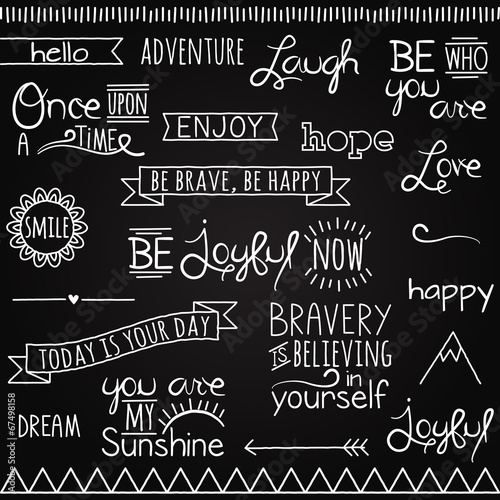 hello
ADVENTURE
Laugh
BE WHO
you are
Once UPON
A TIME
ENJOY
hope
Love
BE BRAVE, BE HAPPY
SMILE
BE Joyful NOW
happy
TODAY IS YOUR DAY
BRAVERY
IS BELIEVING
in
yourself
you are
MY
Sunshine
DREAM
Joyful
Adobe Stock | #67498158